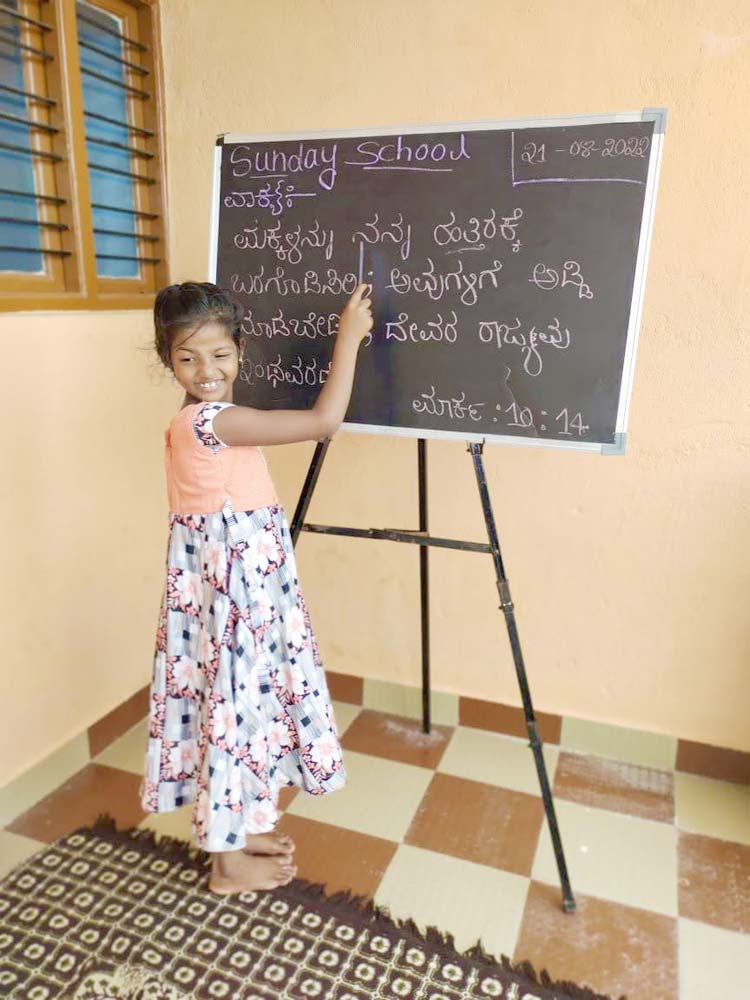 Sunday School
21-08-2022
ವಾಕ್ಯ:-
ಮಕ್ಕಳನ್ನು ನನ್ನ ಹತ್ತಿರಕ್ಕೆ
ಬರಗೊಡಿಸಿರಿ; ಅವುಗಳಿಗೆ ಅಡ್ಡಿ
ದೇವರ ರಾಜ್ಯವು
ಇಂಥವರದೇ
ಮಾರ್ಕ : 10 : 14